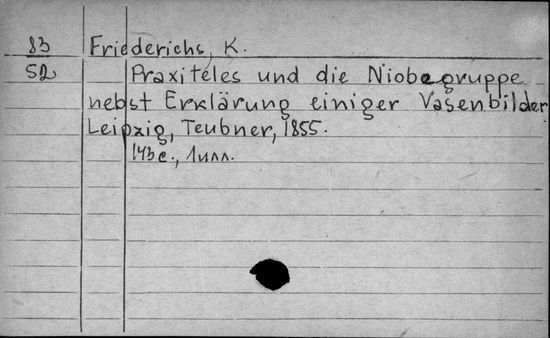 83 Friederichs, K.
52 Praxiteles und die Niobegruppe
nebst Erklärung einiger Vasenbilder
Leipzig, Teubner, 1855.
143 с., 1 илл.